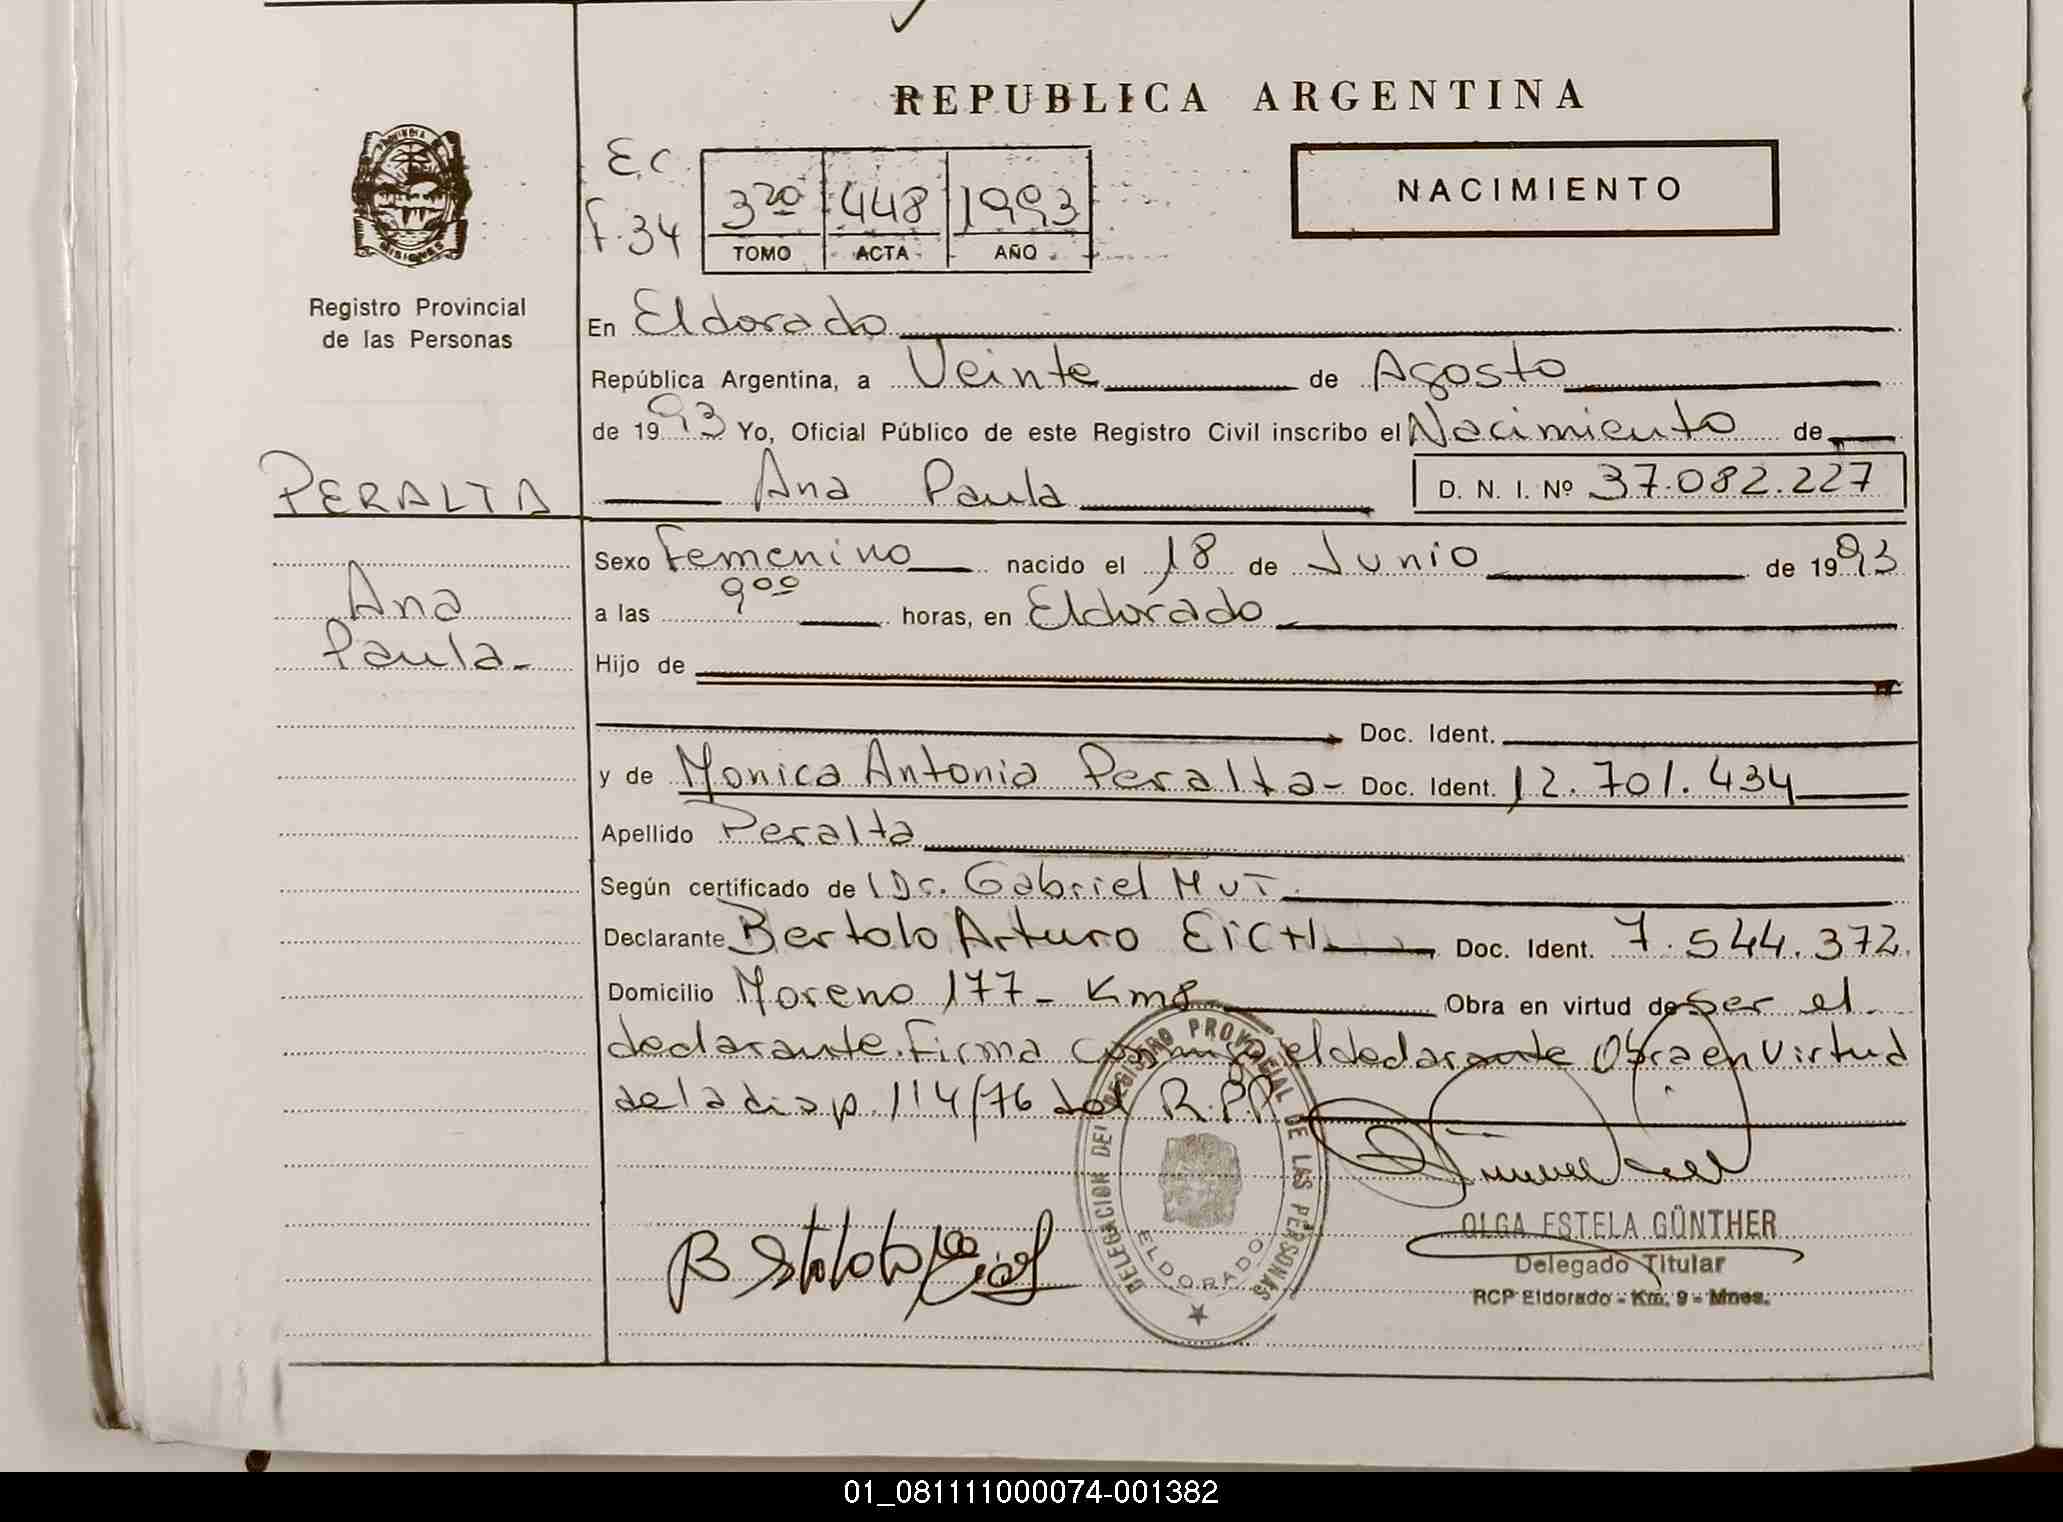 REPUBLICA ARGENTINA
PROVINCIA
MISIONES
Registro Provincial
de las Personas
E.C
F.34
3ro 448 1993
TOMO ACTA AÑO
NACIMIENTO
En Eldorado
República Argentina, a Veinte de Agosto
de 1993 Yo, Oficial Público de este Registro Civil inscribo el Nacimiento de
PERALTA
Ana Paula D. N. I. Nº 37.082.227
Sexo Femenino nacido el 18 de Junio de 1993
Ana
a las 9 00 horas, en Eldorado
Paula-
Hijo de
Doc. Ident.
y de Monica Antonia Peralta- Doc. Ident. 12.701.434
Apellido Peralta
Según certificado de Dr. Gabriel MUT.
Declarante Bertolo Arturo EICH Doc. Ident. 7.544.372.
Domicilio Moreno 177- Km8 Obra en virtud de ser el
declarante. Firma el declarante Obra en virtud
de la disp. 114/76 del R.P.P.
DELEGACION DEL REGISTRO PROVINCIAL DE LAS PERSONAS
ELDORADO
OLGA ESTELA GÜNTHER
Delegado Titular
RCP Eldorado - Km. 9 - Mnes.
01_081111000074-001382